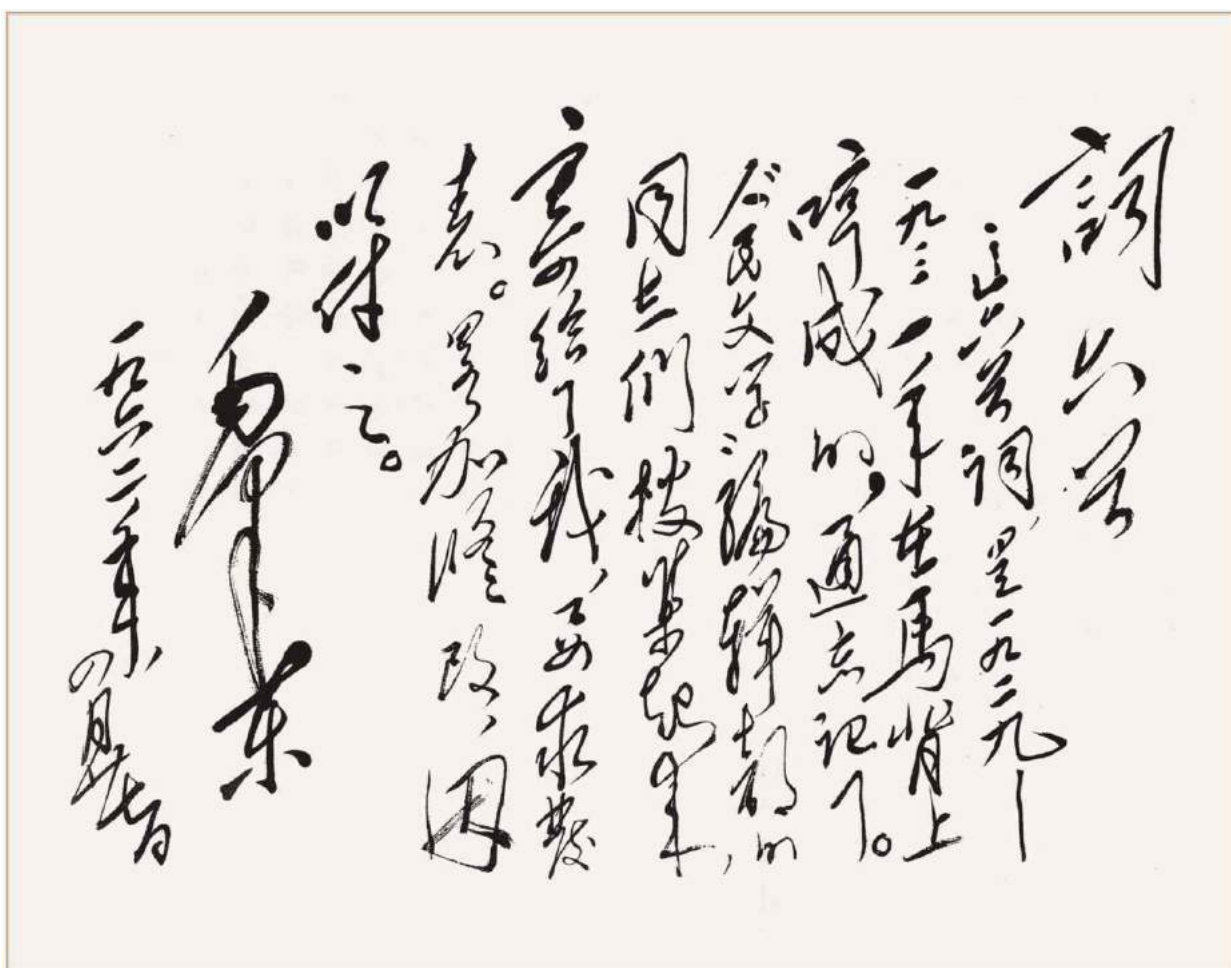 詞六首
这六首詞,是一九二九—
一九三一年在馬背上
哼成的,通忘記了。
人民文学編輯部的
同志們搜集起来,
寄给了我,要求發
表。略加修改,因
以付之。
毛澤東
一九六二年四月廿七日